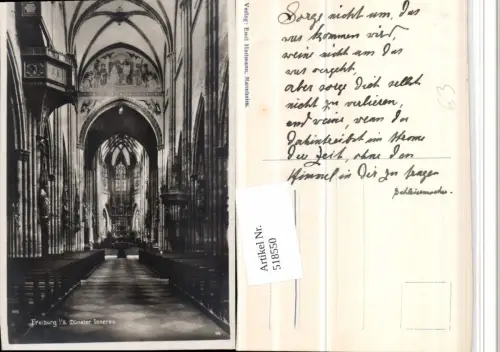 Freiburg i/B. Münster Inneres
Verlag: Emil Hartmann, Mannheim.
Sorge nicht um, das
was kommen wird
weine nicht um das
was vergeht,
aber sorge Dich selbst
nicht zu verlieren,
und weine, wenn du
dahintreibst im Strome
der Zeit, ohne den
Himmel in Dir zu tragen
Schleiermacher.
63
Artikel Nr.
518550